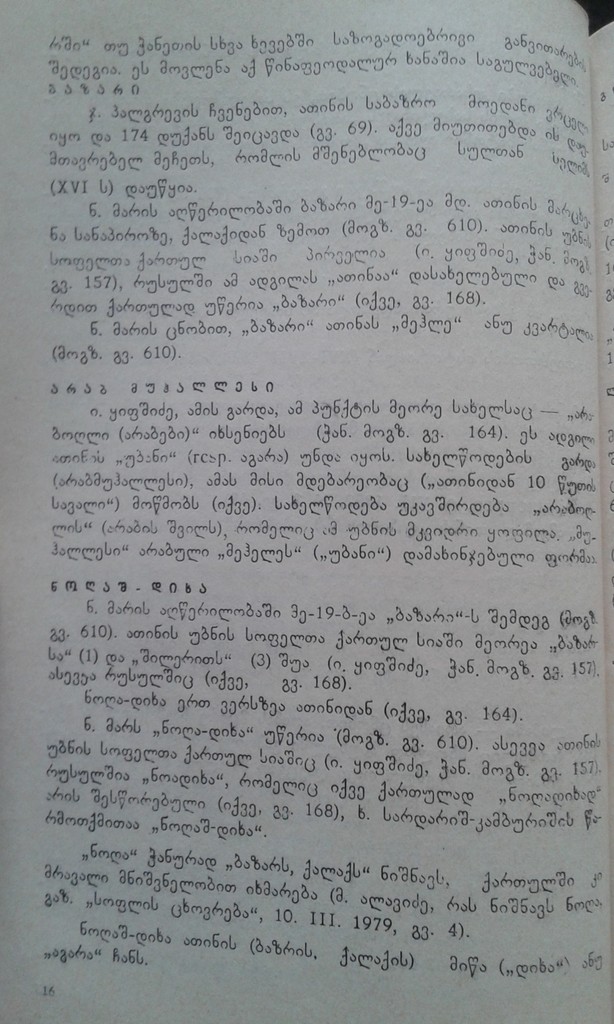 რში“ თუ ჭანეთის სხვა ხევებში საზოგადოებრივი განვითარების
შედეგია. ეს მოვლენა აქ წინაფეოდალურ ხანაშია საგულვებელი.
ბ ა ზ ა რ ი
ჯ. პალგრევის ჩვენებით, ათინის საბაზრო მოედანი ვრცელი
იყო და 174 დუქანს შეიცავდა (გვ. 69). აქვე მიუთითებდა ის დაუ-
მთავრებელ მეჩეთს, რომლის მშენებლობაც სულთან სელიმს
(XVI ს) დაუწყია.
ნ. მარის აღწერილობაში ბაზარი მე-19-ეა მდ. ათინის მარცხე-
ნა სანაპიროზე, ქალაქიდან ზემოთ (მოგზ. გვ. 610). ათინის უბნის
სოფელთა ქართულ სიაში პირველია (ი. ყიფშიძე, ჭან. მოგზ.
გვ. 157), რუსულში ამ ადგილას „ათინაა“ დასახელებული და გვე-
რდით ქართულად უწერია „ბაზარი“ (იქვე, გვ. 168).
ნ. მარის ცნობით, „ბაზარი“ ათინას „მეჰლე“ ანუ კვარტალია
(მოგზ. გვ. 610).
ა რ ა ბ მ უ ჰ ა ლ ლ ე ს ი
ი. ყიფშიძე, ამის გარდა, ამ პუნქტის მეორე სახელსაც — „არა-
ბოღლი (არაბები)“ იხსენიებს (ჭან. მოგზ. გვ. 164). ეს ადგილი
ათინის „უბანი“ (гсар. აგარა) უნდა იყოს. სახელწოდების გარდა
(არაბმუჰალლესი), ამას მისი მდებარეობაც („ათინიდან 10 წუთის
სავალი“) მოწმობს (იქვე). სახელწოდება უკავშირდება „არაბოღ-
ლის“ (არაბის შვილს), რომელიც ამ უბნის მკვიდრი ყოფილა. „მუ-
ჰალლესი“ არაბული „მეჰელეს“ („უბანი“) დამახინჯებული ფორმაა.
ნ ო ღ ა შ - დ ი ხ ა
ნ. მარის აღწერილობაში მე-19-ბ-ეა „ბაზარი“-ს შემდეგ (მოგზ.
გვ. 610). ათინის უბნის სოფელთა ქართულ სიაში მეორეა „ბაზარ-
სა“ (1) და „შილერითს“ (3) შუა (ი. ყიფშიძე, ჭან. მოგზ. გვ. 157).
ასევეა რუსულშიც (იქვე, გვ. 168).
ნოღა-დიხა ერთ ვერსზეა ათინიდან (იქვე, გვ. 164).
ნ. მარს „ნოღა-დიხა“ უწერია (მოგზ. გვ. 610). ასევეა ათინის
უბნის სოფელთა ქართულ სიაშიც (ი. ყიფშიძე, ჭან. მოგზ. გვ. 157).
რუსულშია „ნოადიხა“, რომელიც იქვე ქართულად „ნოღადიხად“
არის შესწორებული (იქვე, გვ. 168), ხ. სარდარიშ-კამბურიშის წა-
რმოთქმითაა „ნოღაშ-დიხა“.
„ნოღა“ ჭანურად „ბაზარს, ქალაქს“ ნიშნავს, ქართულში კი
მრავალი მნიშვნელობით იხმარება (მ. ალავიძე, რას ნიშნავს ნოღა,
გაზ. „სოფლის ცხოვრება“, 10. III. 1979, გვ. 4).
ნოღაშ-დიხა ათინის (ბაზრის, ქალაქის) მიწა („დიხა“) ანუ
„აგარა“ ჩანს.
16